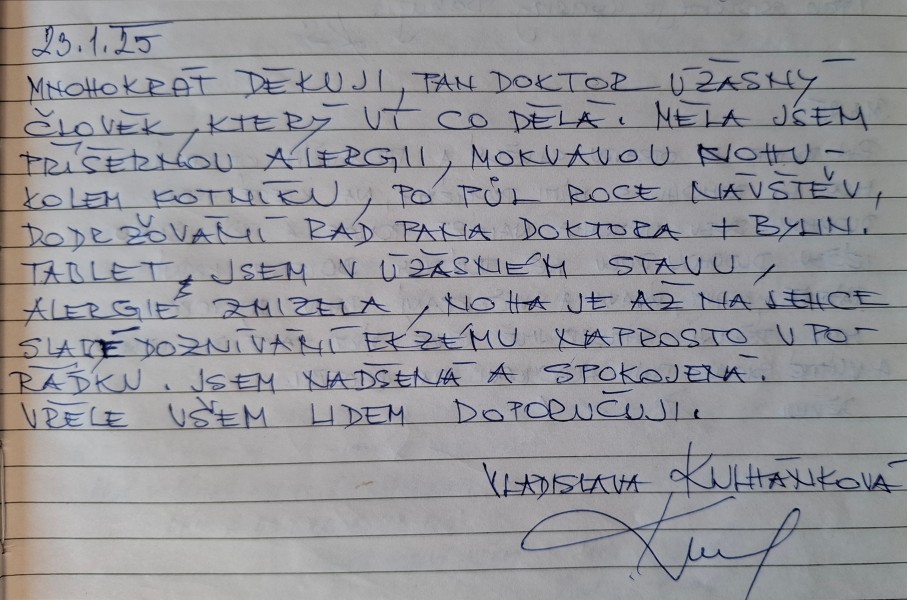 23.1.25
MNOHOKRÁT DĚKUJI, PAN DOKTOR ÚŽASNÝ
ČLOVĚK, KTERÝ VÍ CO DĚLÁ. MĚLA JSEM
PŘÍŠERNOU ALERGII, MOKVAVOU NOHU -
KOLEM KOTNÍKU, PO PŮL ROCE NÁVŠTĚV,
DODRŽOVÁNÍ RAD PANA DOKTORA + BYLIN.
TABLET, JSEM V ÚŽASNÉM STAVU,
ALERGIE ZMIZELA, NOHA JE AŽ NA LEHCE
SLABÉ DOZNÍVÁNÍ EKZÉMU NAPROSTO V PO-
ŘÁDKU. JSEM NADŠENÁ A SPOKOJENÁ.
VŘELE VŠEM LIDEM DOPORUČUJI.
VLADISLAVA